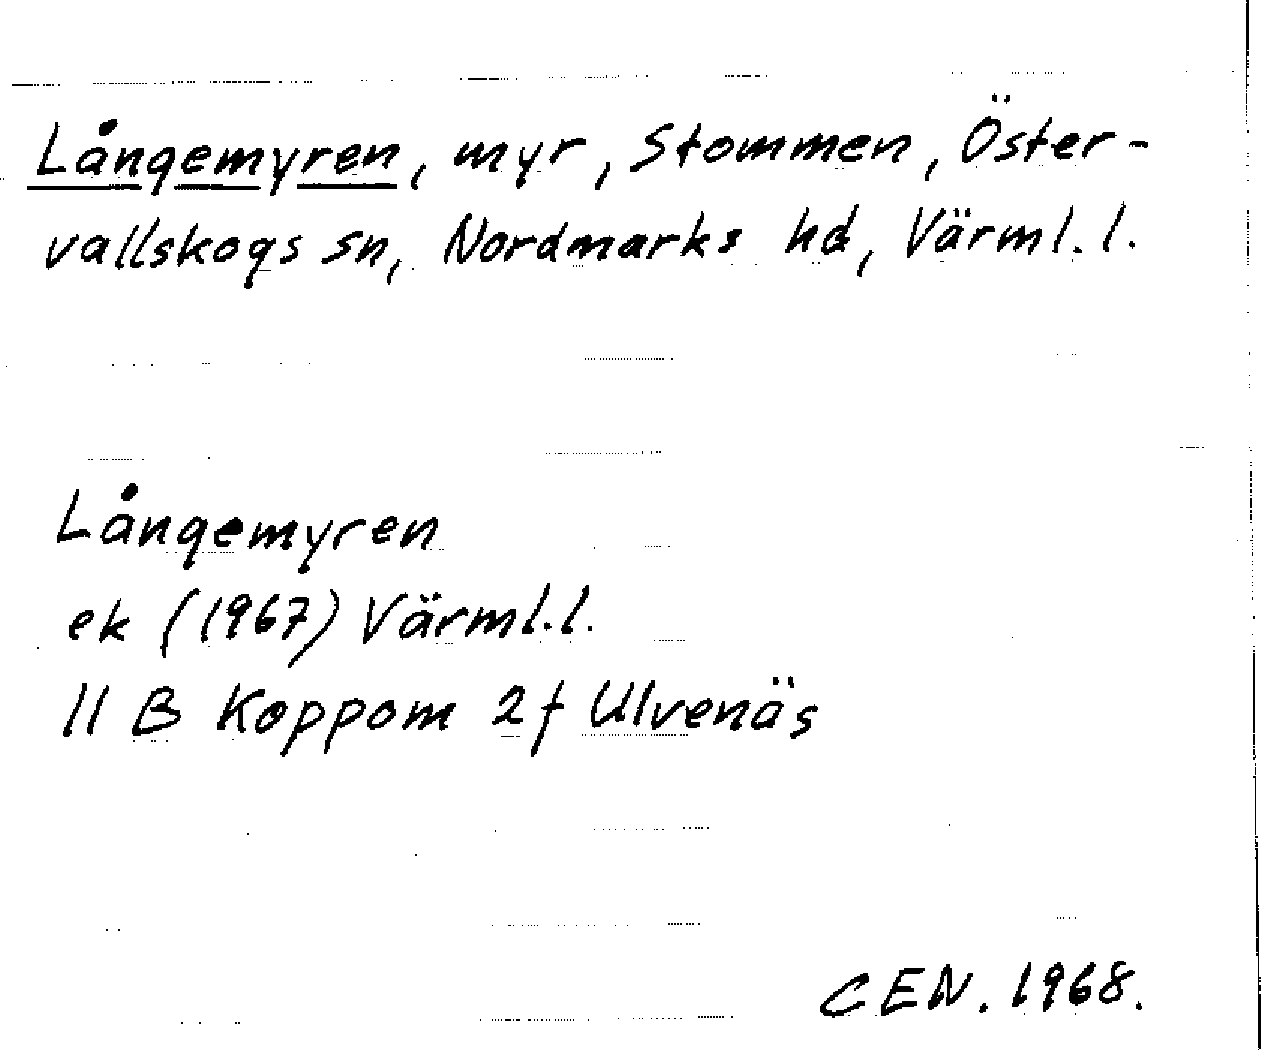 Långemyren, myr, Stommen, Öster-
vallskogs sn, Nordmarks hd, Värml.l.
Långemyren
ek (1967) Värml.l.
11 B Koppom 2f Ulvenäs
CEN. 1968.